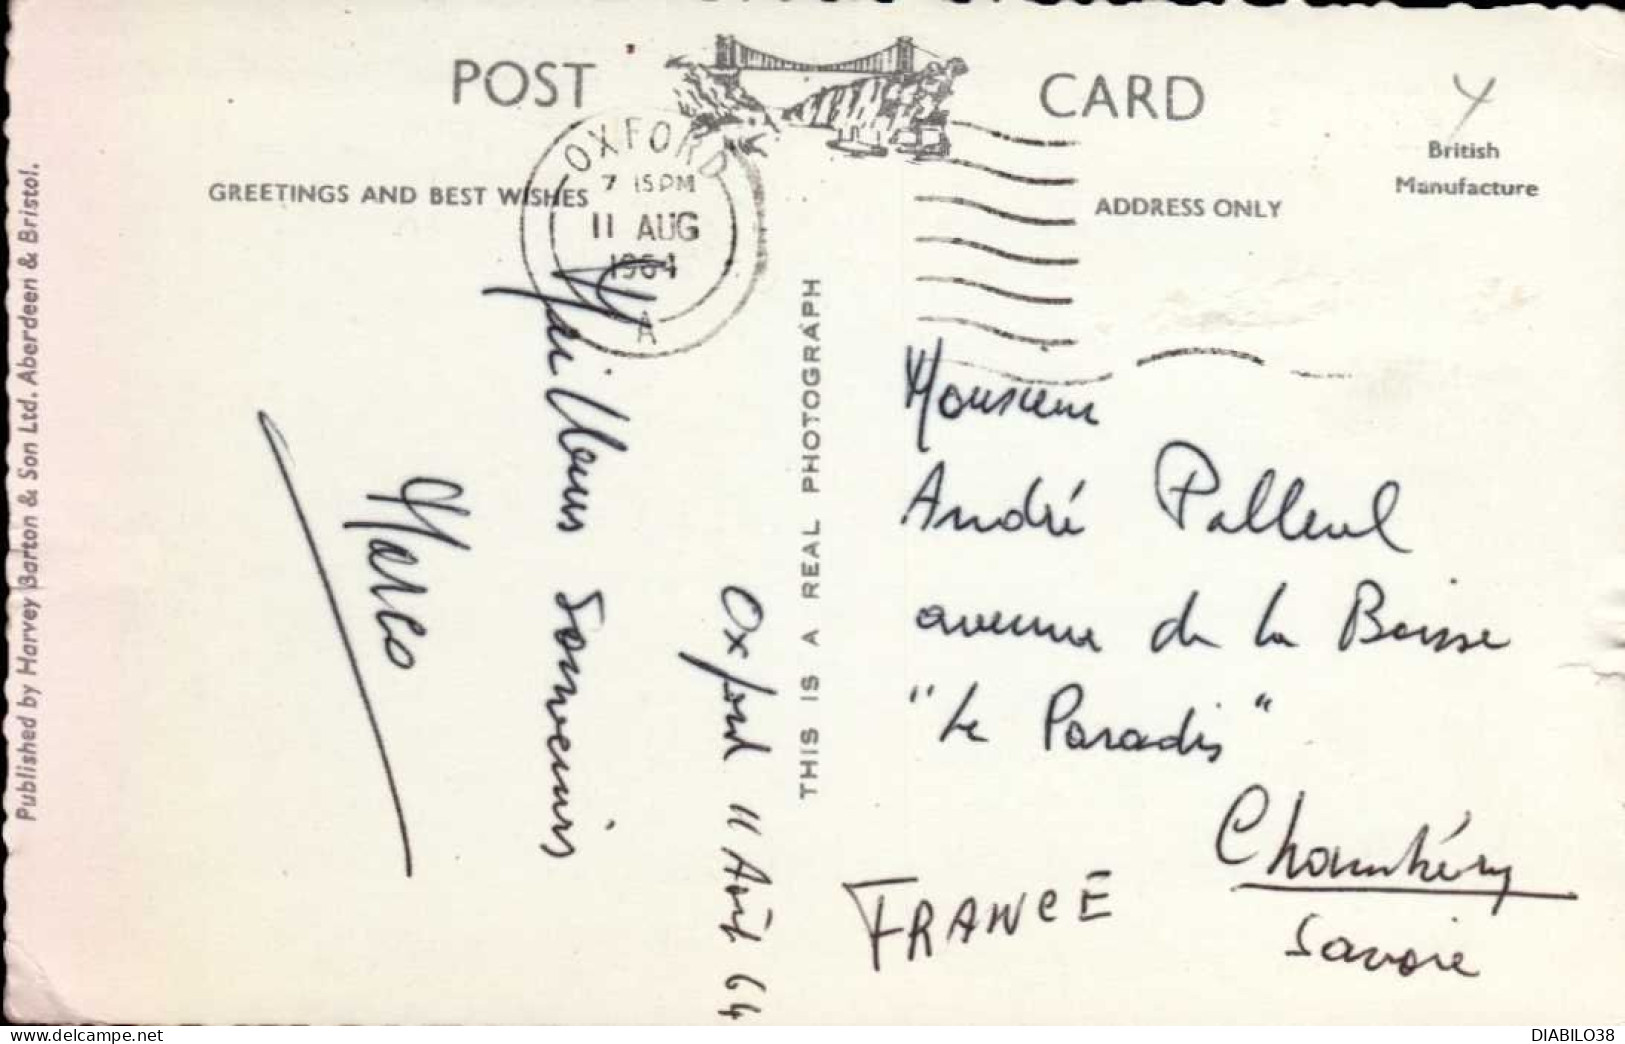 POST CARD
GREETINGS AND BEST WISHES
ADDRESS ONLY
British
Manufacture
OXFORD
7 15PM
11 AUG
1964
A
Published by Harvey Barton & Son Ltd. Aberdeen & Bristol.
THIS IS A REAL PHOTOGRAPH
Oxford 11 Août 64
Meilleurs Souvenirs
Marco
Monsieur
André Palleul
avenue de la Boisse
"Le Paradis"
Chambéry
Savoie
FRANCE
DIABILO38